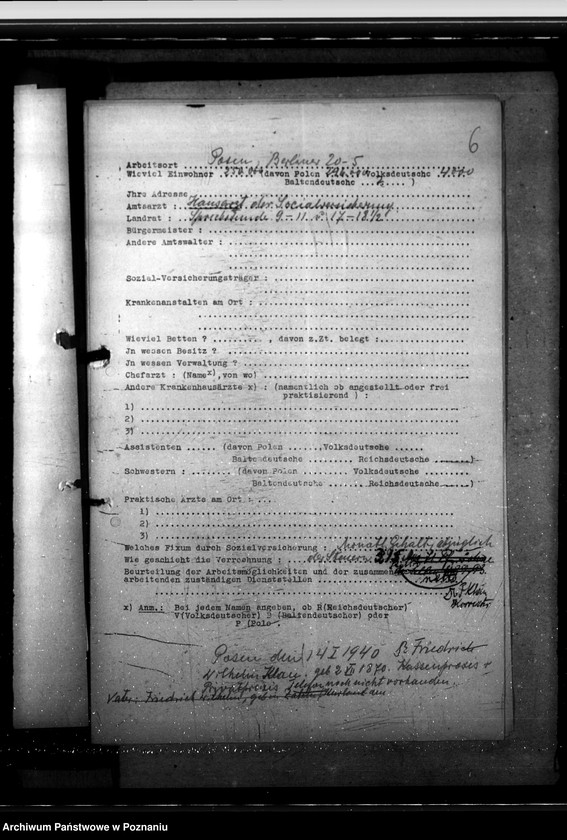 6
Arbeitsort ... Posen, Berliner 20-5
Wieviel Einwohner ... (davon Polen ... Volksdeutsche ...
Baltendeutsche ... )
Jhre Adresse ...
Amtsarzt : Hausarzt der Socialversicherung
Landrat : Sprechstunde 9-11 u. 17-18½
Bürgermeister : ...
Andere Amtswalter : ...
Sozial-Versicherungsträger : ...
Krankenanstalten am Ort : ...
Wieviel Betten ? ... , davon z.Zt. belegt : ...
Jn wessen Besitz ? ...
Jn wessen Verwaltung ? ...
Chefarzt : (Name x), von wo) ...
Andere Krankenhausärzte x) : (namentlich ob angestellt oder frei
praktisierend ) :
1) ...
2) ...
3) ...
Assistenten ...... (davon Polen ....... Volksdeutsche ......
Baltendeutsche ....... Reichsdeutsche .......)
Schwestern : ........ (davon Polen .......... Volksdeutsche ........
Baltendeutsche ........ Reichsdeutsche .......)
Praktische Ärzte am Ort : ...
1) ...
2) ...
3) ...
Welches Fixum durch Sozialversicherung : monatl. Gehalt, abzüglich
Wie geschieht die Verrechnung : ... der Steuern 395
Beurteilung der Arbeitsmöglichkeiten und der zusammen
arbeitenden zuständigen Dienststellen ...
netto
Dr. F. Klau
x) Anm.: Bei jedem Namen angeben, ob R(Reichsdeutscher)
V(Volksdeutscher) B (Baltendeutscher) oder
P (Pole .
Posen den 14 I 1940 Dr Friedrich
Wilhelm Klau, geb 2 1870. Kassenpraxis u
Privatpraxis, Telefon noch nicht vorhanden.
Vater: Friedrich Wilhelm, geb. in
Archiwum Państwowe w Poznaniu